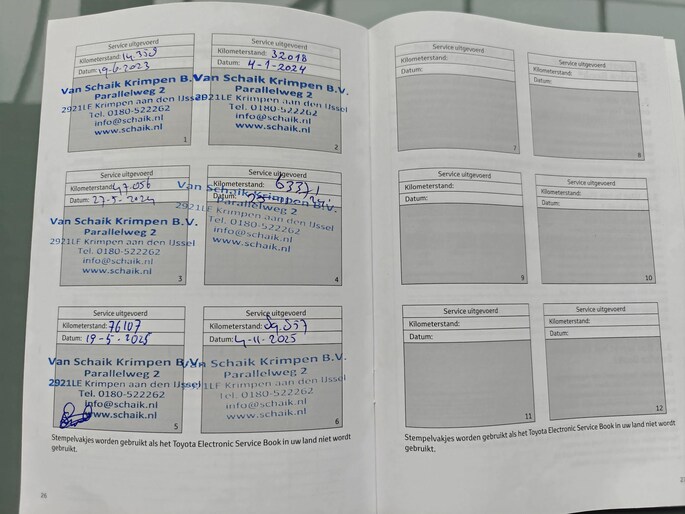 Service uitgevoerd
Kilometerstand: 14.358
Datum: 19-6-2023
Van Schaik Krimpen B.V.
Parallelweg 2
2921LE Krimpen aan den IJssel
Tel. 0180-522262
info@schaik.nl
www.schaik.nl
1
Service uitgevoerd
Kilometerstand: 32018
Datum: 4-1-2024
Van Schaik Krimpen B.V.
Parallelweg 2
2921LE Krimpen aan den IJssel
Tel. 0180-522262
info@schaik.nl
www.schaik.nl
2
Service uitgevoerd
Kilometerstand: 47.056
Datum: 27-5-2024
Van Schaik Krimpen B.V.
Parallelweg 2
2921LE Krimpen aan den IJssel
Tel. 0180-522262
info@schaik.nl
www.schaik.nl
3
Service uitgevoerd
Kilometerstand: 63371
Datum:
Van Schaik Krimpen B.V.
Parallelweg 2
2921LE Krimpen aan den IJssel
Tel. 0180-522262
info@schaik.nl
www.schaik.nl
4
Service uitgevoerd
Kilometerstand: 76107
Datum: 19-5-2025
Van Schaik Krimpen B.V.
Parallelweg 2
2921LE Krimpen aan den IJssel
Tel. 0180-522262
info@schaik.nl
www.schaik.nl
5
Service uitgevoerd
Kilometerstand:
Datum: 4-11-2025
Van Schaik Krimpen B.V.
Parallelweg 2
2921LE Krimpen aan den IJssel
Tel. 0180-522262
info@schaik.nl
www.schaik.nl
6
Stempelvakjes worden gebruikt als het Toyota Electronic Service Book in uw land niet wordt
gebruikt.
26
Service uitgevoerd
Kilometerstand:
Datum:
7
Service uitgevoerd
Kilometerstand:
Datum:
8
Service uitgevoerd
Kilometerstand:
Datum:
9
Service uitgevoerd
Kilometerstand:
Datum:
10
Service uitgevoerd
Kilometerstand:
Datum:
11
Service uitgevoerd
Kilometerstand:
Datum:
12
Stempelvakjes worden gebruikt als het Toyota Electronic Service Book in uw land niet wordt
gebruikt.